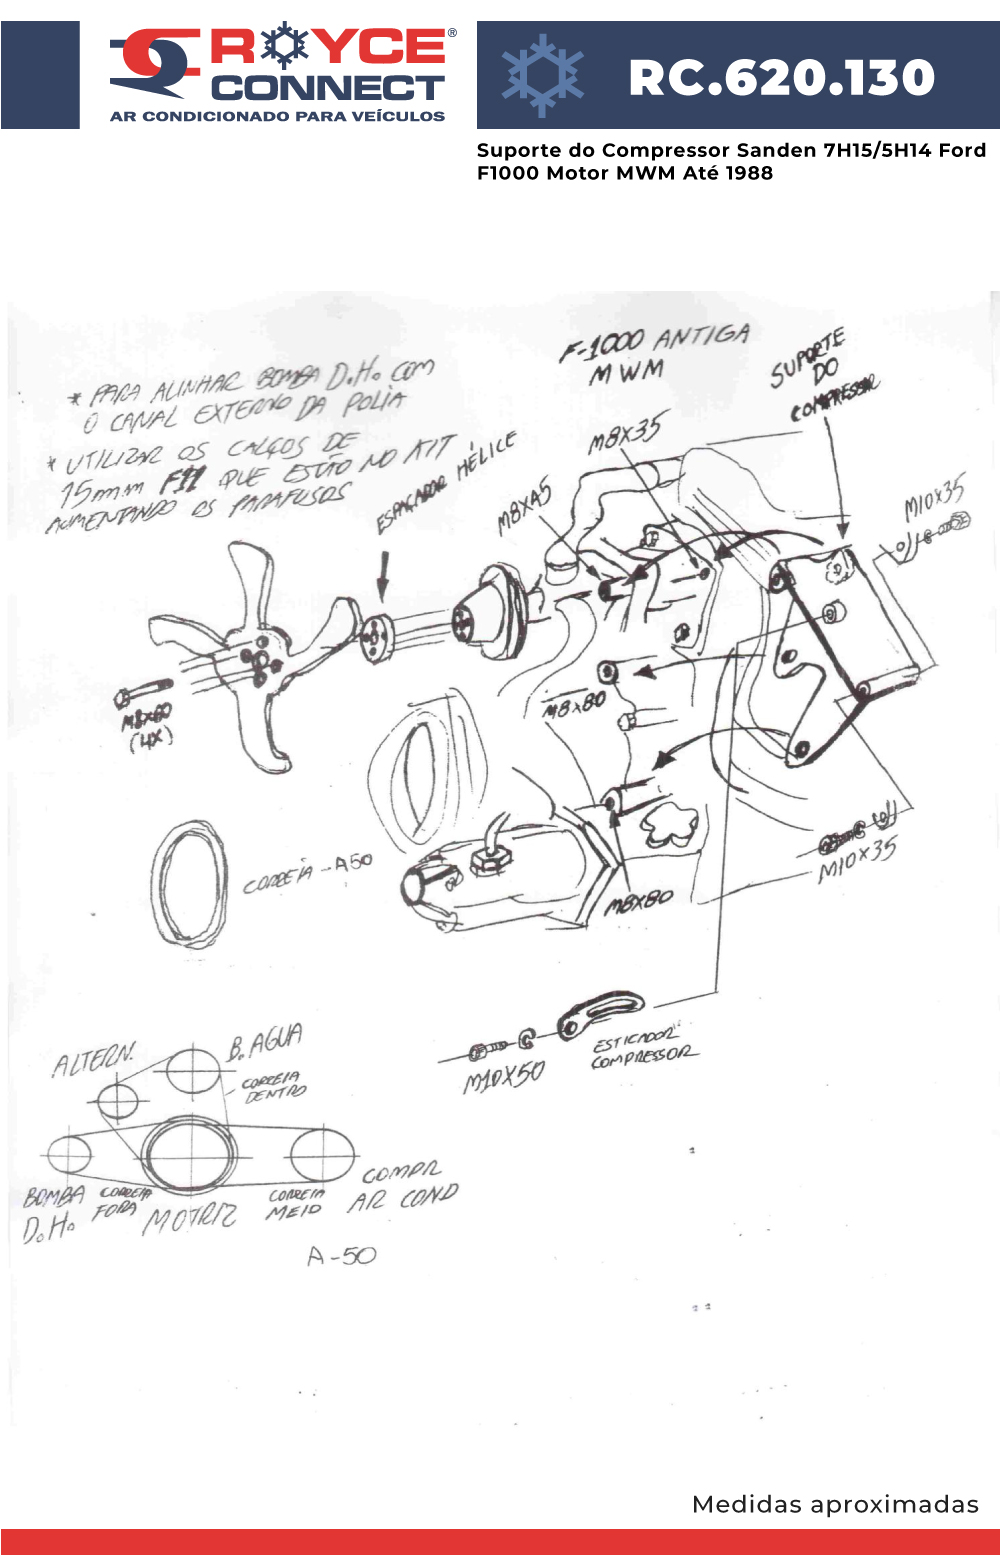 ROYCE®
CONNECT
AR CONDICIONADO PARA VEÍCULOS
RC.620.130
Suporte do Compressor Sanden 7H15/5H14 Ford
F1000 Motor MWM Até 1988
F-1000 ANTIGA
MWM
SUPORTE
DO
COMPRESSOR
* PARA ALINHAR BOMBA D.H. COM
O CANAL EXTERNO DA POLIA
* UTILIZAR OS CALÇOS DE
15mm QUE ESTÃO NO KIT
AUMENTANDO OS PARAFUSOS
ESPAÇADOR HÉLICE
M8XA5
M8X35
M10X35
M8X80
(4X)
M8X80
CORREIA - A50
M8X80
M10X35
M10X50
ESTICADOR
COMPRESSOR
ALTERN.
B. AGUA
CORREIA
DENTRO
BOMBA
D.H.
CORREIA
FORA
MOTRIZ
CORREIA
MEIO
COMPR
AR COND
A-50
Medidas aproximadas